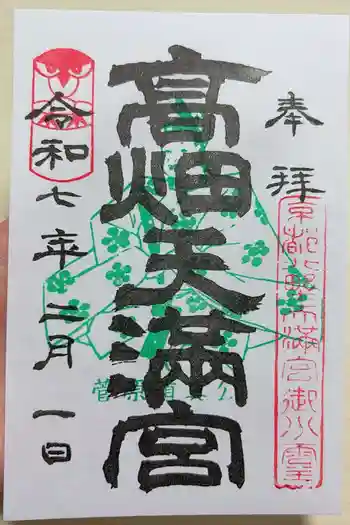 奉拝
京都北野天満宮御分霊
高畑天満宮
菅原道真公
令和七年二月一日